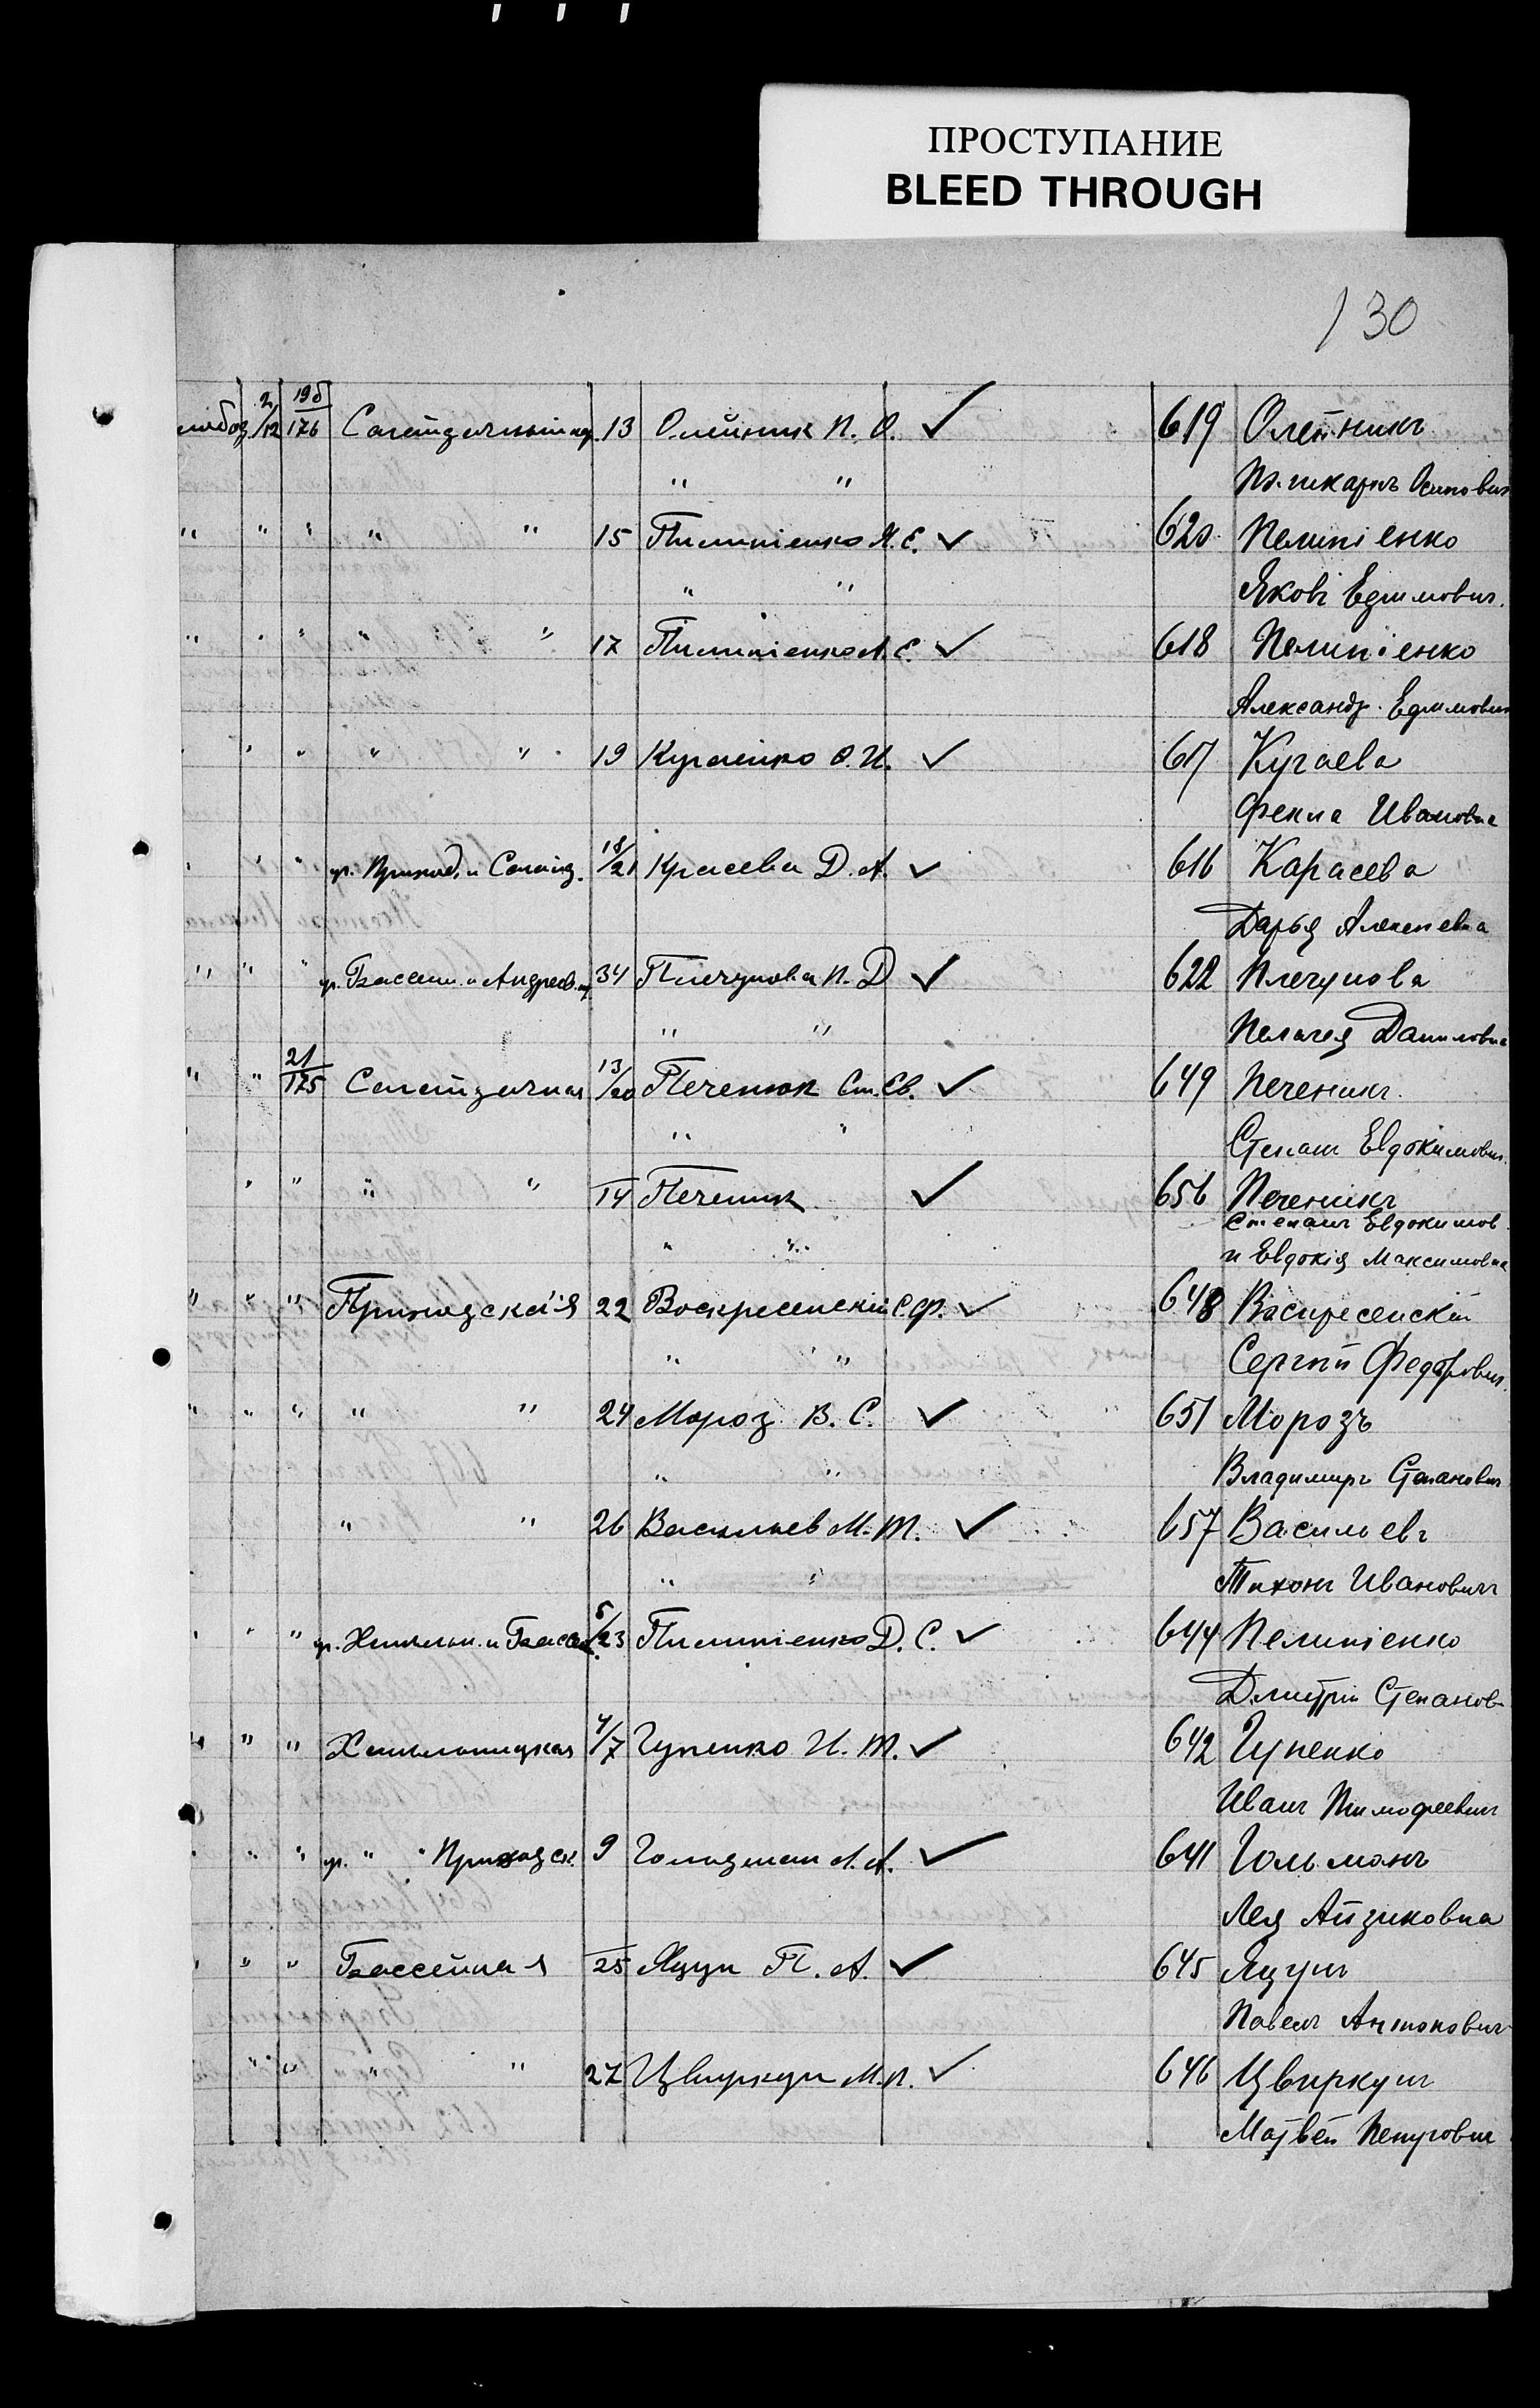 ПРОСТУПАНИЕ
BLEED THROUGH
130
2/12 19б/176 13 Олейник П. О. ✓ 619 Олейникъ
" " Осипович
" " " " " 15 Пилипіенко Я. Е. ✓ 620 Пелипіенко
" " Яковъ Ефимович.
" " " " " 17 Пилипіенко А. Е. ✓ 618 Пелипіенко
Александр. Ефимович
" " " " " 19 О. И. ✓ 617 Кугаева
Фекла Ивановна
" " " уг. Приход. и Солдц. 18/21 Красева Д. А. ✓ 616 Карасева
Дарья Алексеевна
" " " уг. Бассейн. и Андреев. 34 Плечунова П. Д ✓ 622 Плечунова
" " Пелагея Даниловна
" " 21/175 13/20 Печенюк Ст. Ев. ✓ 649 Печеникъ
" " Степанъ Евдокимович.
" " " " 14 Печеник ✓ 656 Печеникъ
Степанъ Евдокимов
" " и Евдокія Максимовна
" " " Приходская 22 Воскресенскій С. Ф. ✓ 648 Васкресенскій
" " Сергѣй Федорович.
" " " " " 24 Мороз В. С. ✓ 651 Морозъ
" " Владимиръ Степанович
" " 26 Васильев М. Т. ✓ 657 Васильевъ
" " Тихонъ Ивановичъ
" " " уг. Хмельн. и Бассейн. 5/23 Пилипіенко Д. С. ✓ 644 Пелипіенко
Дмитрій Степанов
" " " Хмельницкая 4/7 Гупенко И. Т. ✓ 642 Гупенко
Иванъ Тимофеевич
" " " уг. " " Приходск. 9 Гольдман Л. А. ✓ 641 Гольманъ
Лея Айзиковна
" " " Бассейная 25 Яцун П. А. ✓ 645 Яцунъ
Павелъ Антонович
" " " " 27 Цвиркун М. П. ✓ 646 Цвиркунъ
Матвей Петрович